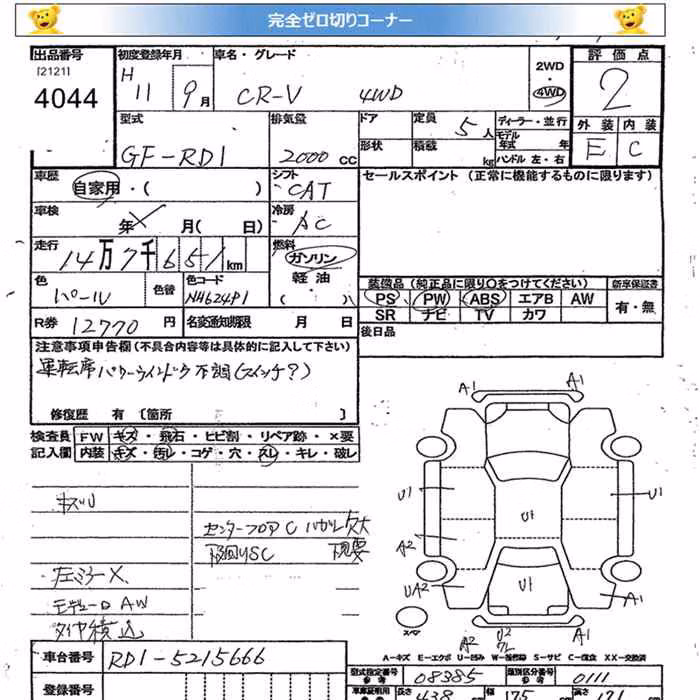 完全ゼロ切りコーナー
出品番号
[2121]
4044
初度登録年月
H 11 9月
車名・グレード
CR-V 4WD
2WD
・
4WD
評価点
2
外装 内装
E C
型式
GF-RD1
排気量
2000 cc
ドア
形状
定員
5人
積載
kg
ディーラー・並行
モデル
年式 年
ハンドル 左・右
車歴
自家用・( )
シフト
CAT
セールスポイント (正常に機能するものに限ります)
車検
年 月( 日)
冷房
AC
走行
14万7千651km
燃料
ガソリン
軽油
・
( )
色
パール
色替
色コード
NH624P1
装備品(純正品に限り〇をつけてください)
新車保証書
PS PW ABS エアB AW
SR ナビ TV カワ
有・無
R券 12770 円
名変通知期限 月 日
後日品
注意事項申告欄(不具合内容等は具体的に記入して下さい)
運転席パワーウインドウ不調(スイッチ?)
修復歴 有 [箇所 ]
検査員
記入欄
FW キズ・飛石・ヒビ割・リペア跡・×要
内装 キズ・汚レ・コゲ・穴・スレ・キレ・破レ
センターフロア C ハガレ 欠大
下回りSC 下見要
左ミラーX
モデューロ AW
タイヤ積込
A1 A1
U1 U1
U1
A2
U1
UA2 A1
スペア
A2 U2 A1
A-キズ E-エクボ U-凹み W-補修跡 S-サビ C-腐食 XX-交換済
車台番号
RD1-5215666
型式指定番号
参考
08385
類別区分番号
参考
0111
登録番号
長さ
438
幅
175
高さ